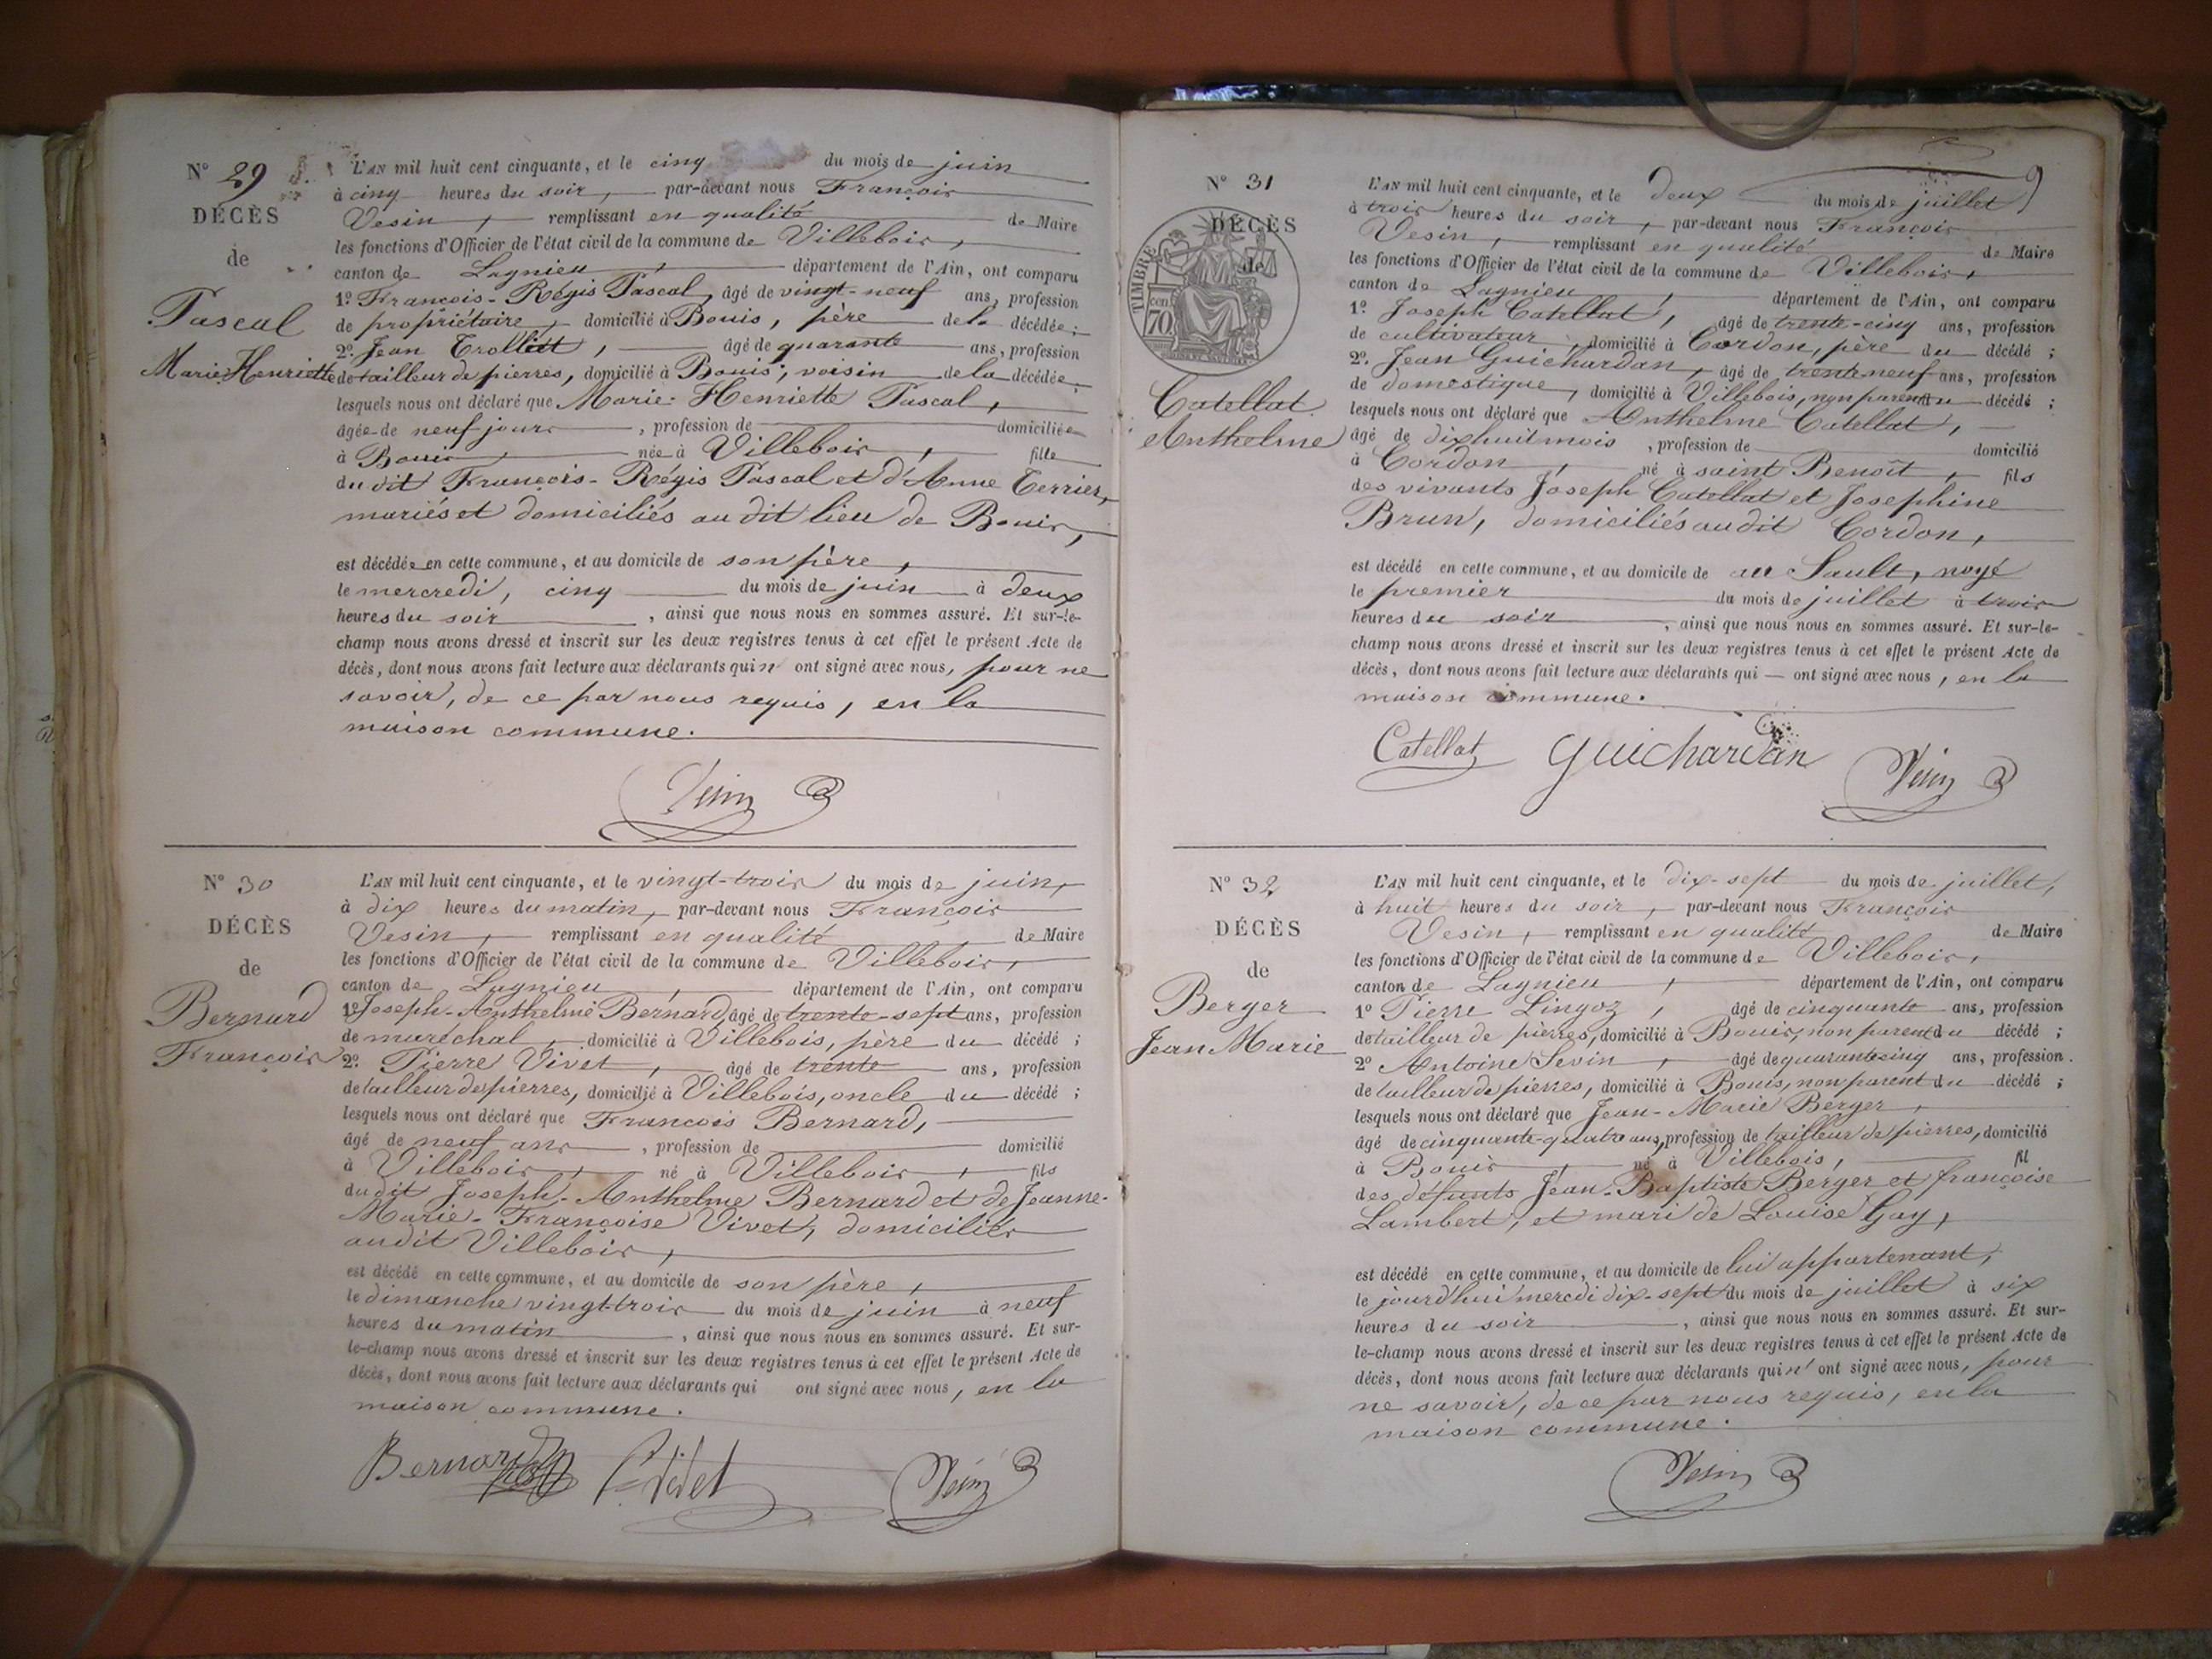 N° 29
DÉCÈS
de
Pascal
Marie-Henriette
L'AN mil huit cent cinquante, et le cinq du mois de juin
à cinq heures du soir, par-devant nous François
Vesin, remplissant en qualité de Maire
les fonctions d'Officier de l'état civil de la commune de Villebois,
canton de Lagnieu, département de l'Ain, ont comparu
1° François-Régis Pascal, âgé de vingt-neuf ans, profession
de propriétaire, domicilié à Bouis, père de la décédée;
2° Jean Trolliet, âgé de quarante ans, profession
de tailleur de pierres, domicilié à Bouis, voisin de la décédée;
lesquels nous ont déclaré que Marie-Henriette Pascal,
âgée de neuf jours, profession de domiciliée
à Bouis, née à Villebois, fille
du dit François-Régis Pascal et d'Anne Terrier,
mariés et domiciliés au dit lieu de Bouis,
est décédée en cette commune, et au domicile de son père,
le mercredi, cinq du mois de juin à deux
heures du soir, ainsi que nous nous en sommes assuré. Et sur-le-
champ nous avons dressé et inscrit sur les deux registres tenus à cet effet le présent Acte de
décès, dont nous avons fait lecture aux déclarants qui n' ont signé avec nous, pour ne
savoir, de ce par nous requis, en la
maison commune.
Vesin
N° 30
DÉCÈS
de
Bernard
François
L'AN mil huit cent cinquante, et le vingt-trois du mois de juin,
à dix heures du matin, par-devant nous François
Vesin, remplissant en qualité de Maire
les fonctions d'Officier de l'état civil de la commune de Villebois,
canton de Lagnieu, département de l'Ain, ont comparu
1° Joseph-Anthelme Bernard, âgé de trente-sept ans, profession
de maréchal, domicilié à Villebois, père du décédé;
2° Pierre Vivet, âgé de trente ans, profession
de tailleur de pierres, domicilié à Villebois, oncle du décédé;
lesquels nous ont déclaré que François Bernard,
âgé de neuf ans, profession de domicilié
à Villebois, né à Villebois, fils
du dit Joseph-Anthelme Bernard et de Jeanne-
Marie-Françoise Vivet, domiciliés
audit Villebois,
est décédé en cette commune, et au domicile de son père,
le dimanche vingt-trois du mois de juin à neuf
heures du matin, ainsi que nous nous en sommes assuré. Et sur-
le-champ nous avons dressé et inscrit sur les deux registres tenus à cet effet le présent Acte de
décès, dont nous avons fait lecture aux déclarants qui ont signé avec nous, en la
maison commune.
Bernard Vivet Vesin
N° 31
DÉCÈS
de
TIMBRE
70
Catellat
Anthelme
L'AN mil huit cent cinquante, et le deux du mois de juillet
à trois heures du soir, par-devant nous François
Vesin, remplissant en qualité de Maire
les fonctions d'Officier de l'état civil de la commune de Villebois,
canton de Lagnieu, département de l'Ain, ont comparu
1° Joseph Catellat, âgé de trente-cinq ans, profession
de cultivateur, domicilié à Cordon, père du décédé;
2° Jean Guichardan, âgé de trente neuf ans, profession
de domestique, domicilié à Villebois, non parent du décédé;
lesquels nous ont déclaré que Anthelme Catellat,
âgé de dix huit mois, profession de domicilié
à Cordon, né à saint Benoît, fils
des vivants Joseph Catellat et Josephine
Brun, domiciliés audit Cordon,
est décédé en cette commune, et au domicile de au Sault, noyé
le premier du mois de juillet à trois
heures du soir, ainsi que nous nous en sommes assuré. Et sur-le-
champ nous avons dressé et inscrit sur les deux registres tenus à cet effet le présent Acte de
décès, dont nous avons fait lecture aux déclarants qui — ont signé avec nous, en la
maison commune.
Catellat Guichardan Vesin
N° 32
DÉCÈS
de
Berger
Jean Marie
L'AN mil huit cent cinquante, et le dix-sept du mois de juillet,
à huit heures du soir, par-devant nous François
Vesin, remplissant en qualité de Maire
les fonctions d'Officier de l'état civil de la commune de Villebois,
canton de Lagnieu, département de l'Ain, ont comparu
1° Pierre Lingoz, âgé de cinquante ans, profession
de tailleur de pierres, domicilié à Bouis, non parent du décédé;
2° Antoine Sevin, âgé de quarante cinq ans, profession
de tailleur de pierres, domicilié à Bouis, non parent du décédé;
lesquels nous ont déclaré que Jean-Marie Berger,
âgé de cinquante-quatre ans, profession de tailleur de pierres, domicilié
à Bouis, né à Villebois, fil
des défunts Jean-Baptiste Berger et françoise
Lambert, et mari de Louise Gay,
est décédé en cette commune, et au domicile de lui appartenant,
le jourd'hui mercdi dix-sept du mois de juillet à six
heures du soir, ainsi que nous nous en sommes assuré. Et sur-
le-champ nous avons dressé et inscrit sur les deux registres tenus à cet effet le présent Acte de
décès, dont nous avons fait lecture aux déclarants qui n' ont signé avec nous, pour
ne savoir, de ce par nous requis, en la
maison commune.
Vesin